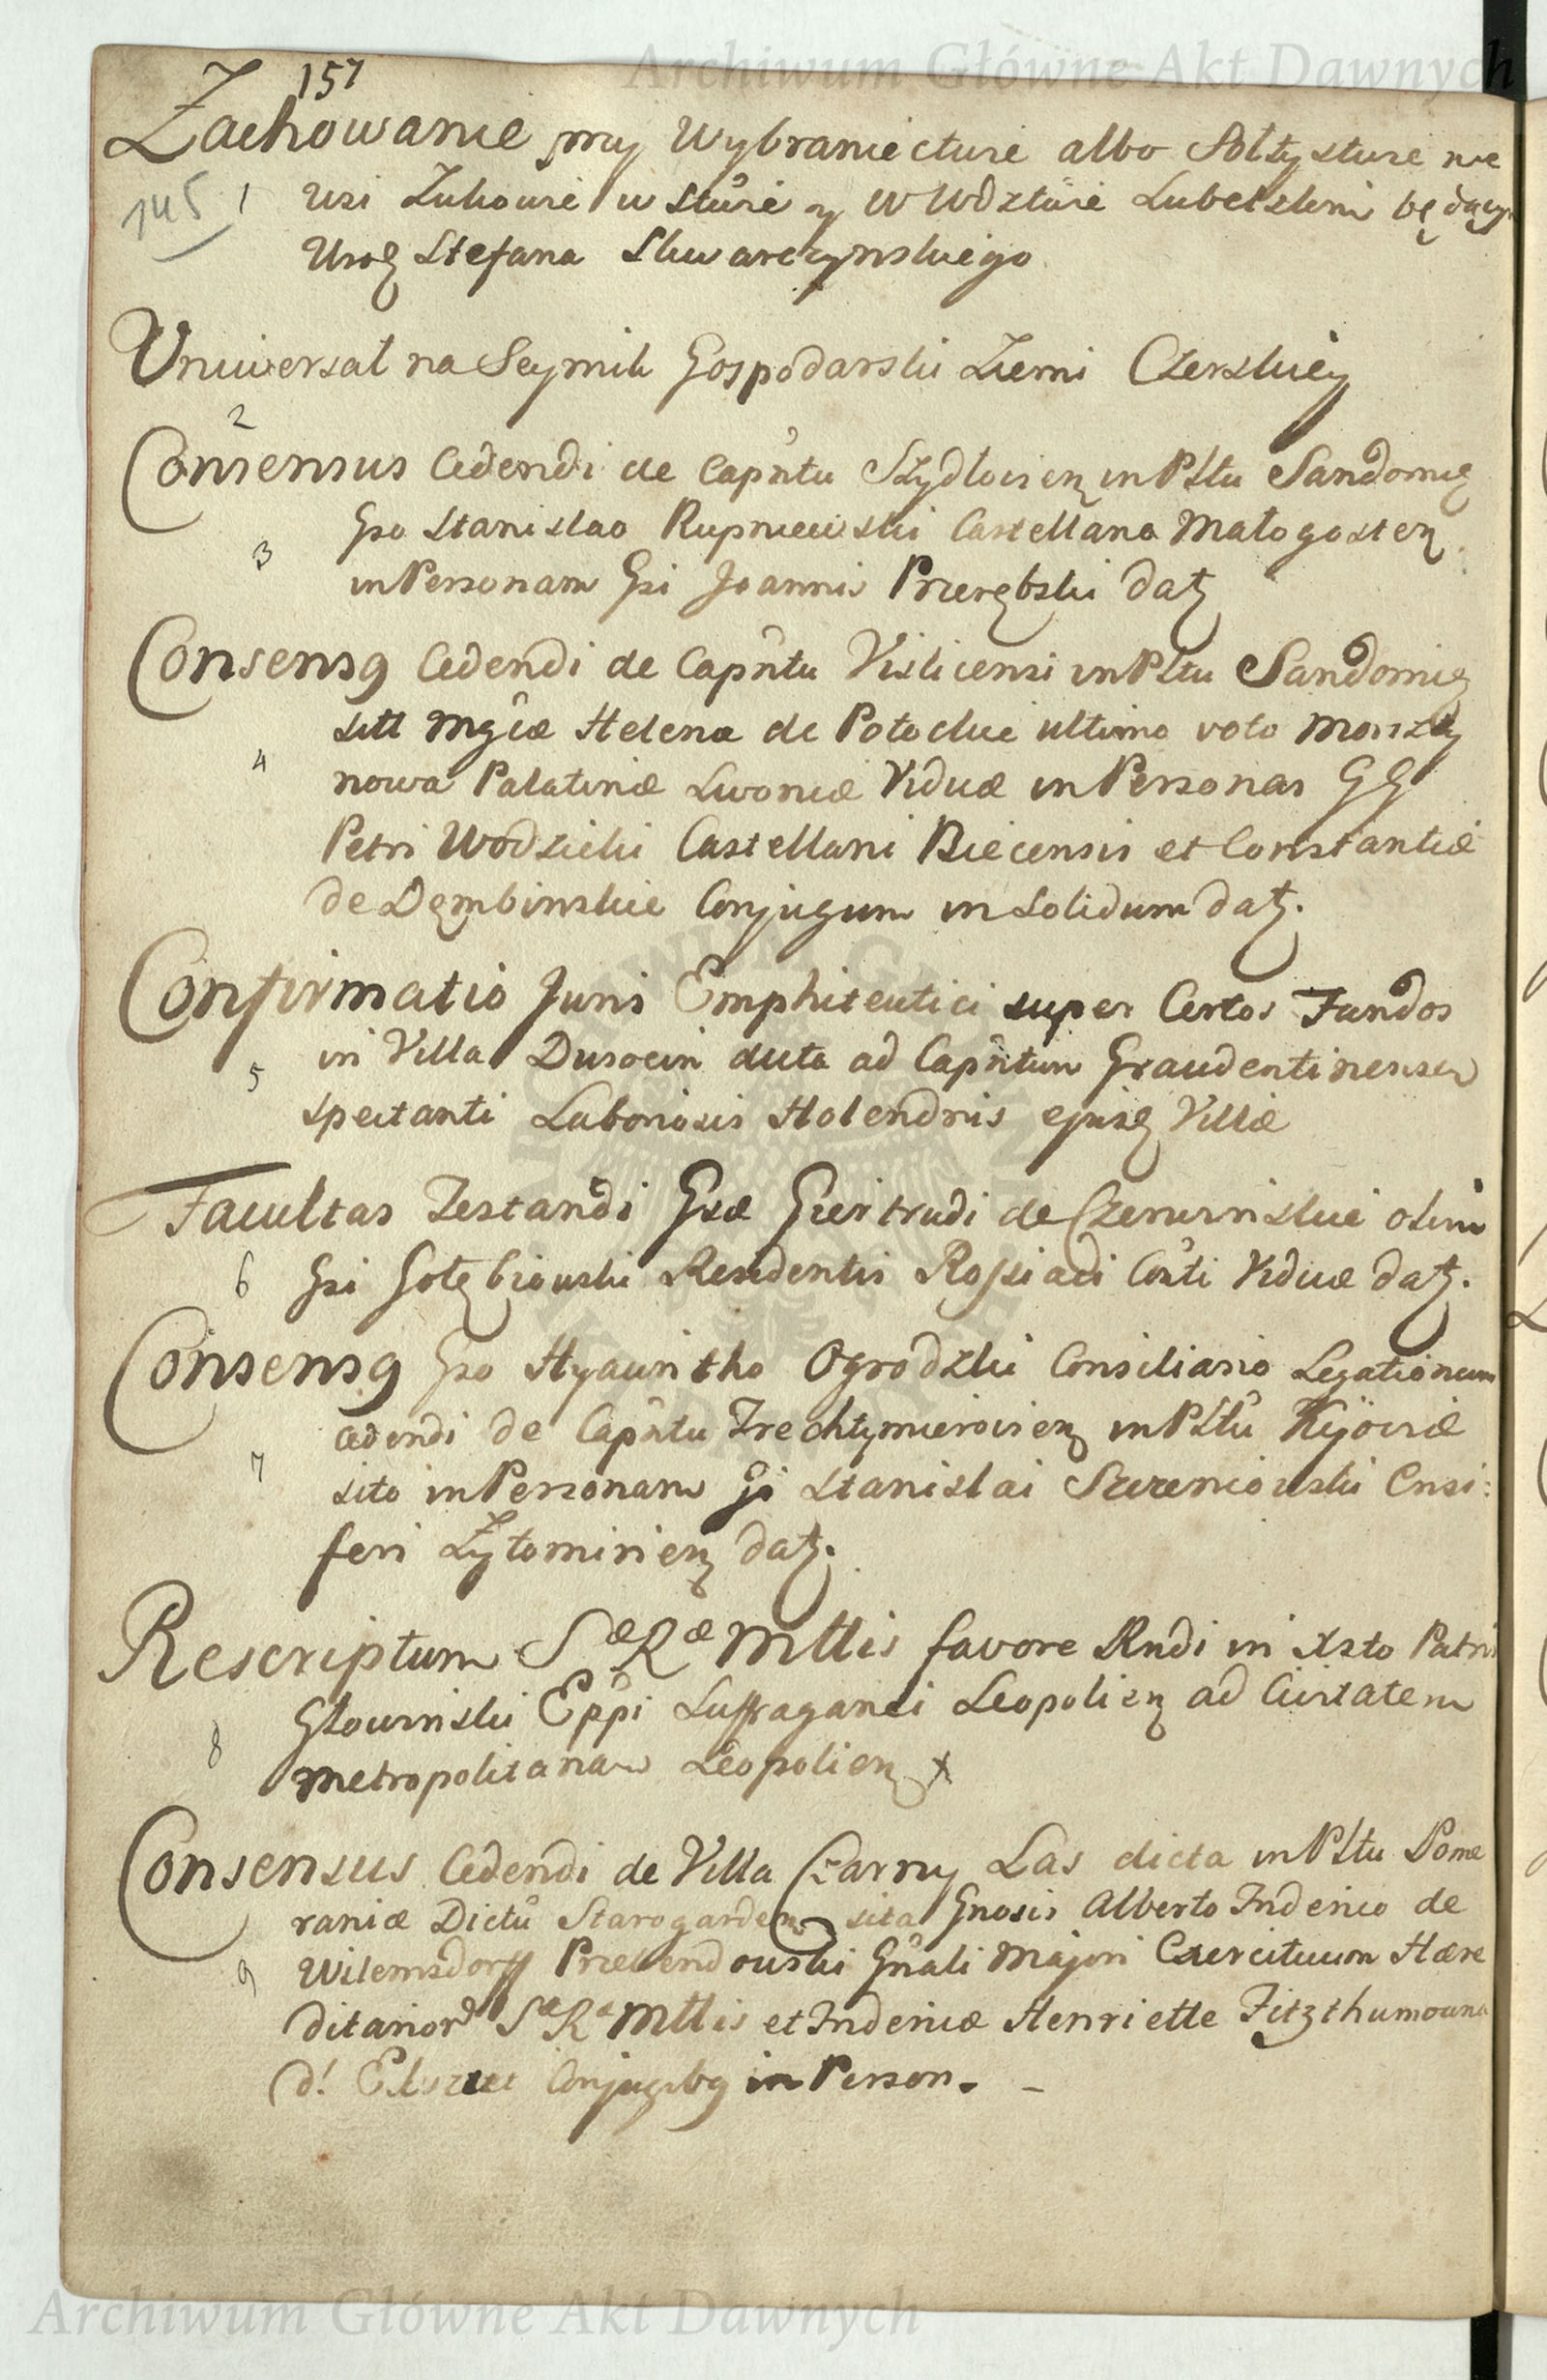 Archiwum Główne Akt Dawnych
157
Zachowanie przy Wybraniecture albo Sołtysture we
145 1 Wsi Żukowie w Stũrie y W Wdzture Lubelskim będący
Uroz Stefana Skwarczynskiego
Uniwersał na Seymik Gospodarski Ziemi Czerskiey
2
Consensus Cedendi de Capñtu Szydłovienz in Plłtu Sandomiz
Gso Stanislao Rupniewski Castellano Małogostenz
3
in Personam Gsi Joannis Przerębski datz
Consensg Cedendi de Capñtu Vislicensi in Plłtu Sandomiz
Mgcæ Helenæ de Potockie ultimo voto Morszty
4
nowa Palatinæ Livoniæ Viduæ in Personas GG
Petri Wodzicki Castellani Biecensis et Constantiæ
de Dęmbinskie Conjugum in Solidum datz.
Confirmatio Juris Emphiteutici super Certos Fundos
in Villa Dusocin dicta ad Capñtum Graudentinensem
5
spectanti Laboriosis Holendris ejusz Villæ
Facultas Testandi Gsæ Giertrudi de Czerwinskie olim
6 Gsi Gołębiowski Residentis Rossiaci Cońti Viduæ datz.
Consensg Gso Hyacintho Ogrodzki Consiliario Legationum
cedendi de Capñtu Trechtymirovienz in Plłtũ Kijoviæ
7
sito in Personam Gi Stanislai Szczeniowski Ensi:
feri Żytomirienz datz.
Rescriptum SæRæ Mttis favore Rndi in Xsto Patris
Głowinski Eppi Suffraganei Leopolienz ad Civitatem
8
Metropolitanam Leopolienz x
Consensus Cedendi de Villa Czarny Las dicta in Plłtu Pome
raniæ Dictũ Starogardenz sita Gnosis Alberto Inderico de
9 Wilemsdorff Przebendowski Gñali Majori Exercituum Hære
ditarior SæRæ Mttis et Indericæ Henriette Fitzthumowna
d! Conjugibg in Person. –
Archiwum Główne Akt Dawnych